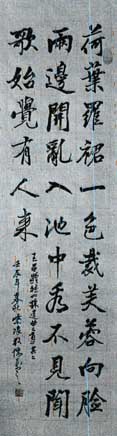 荷葉羅裙一色裁芙蓉向臉
兩邊開亂入池中看不見聞
歌始覺有人來
王昌齡